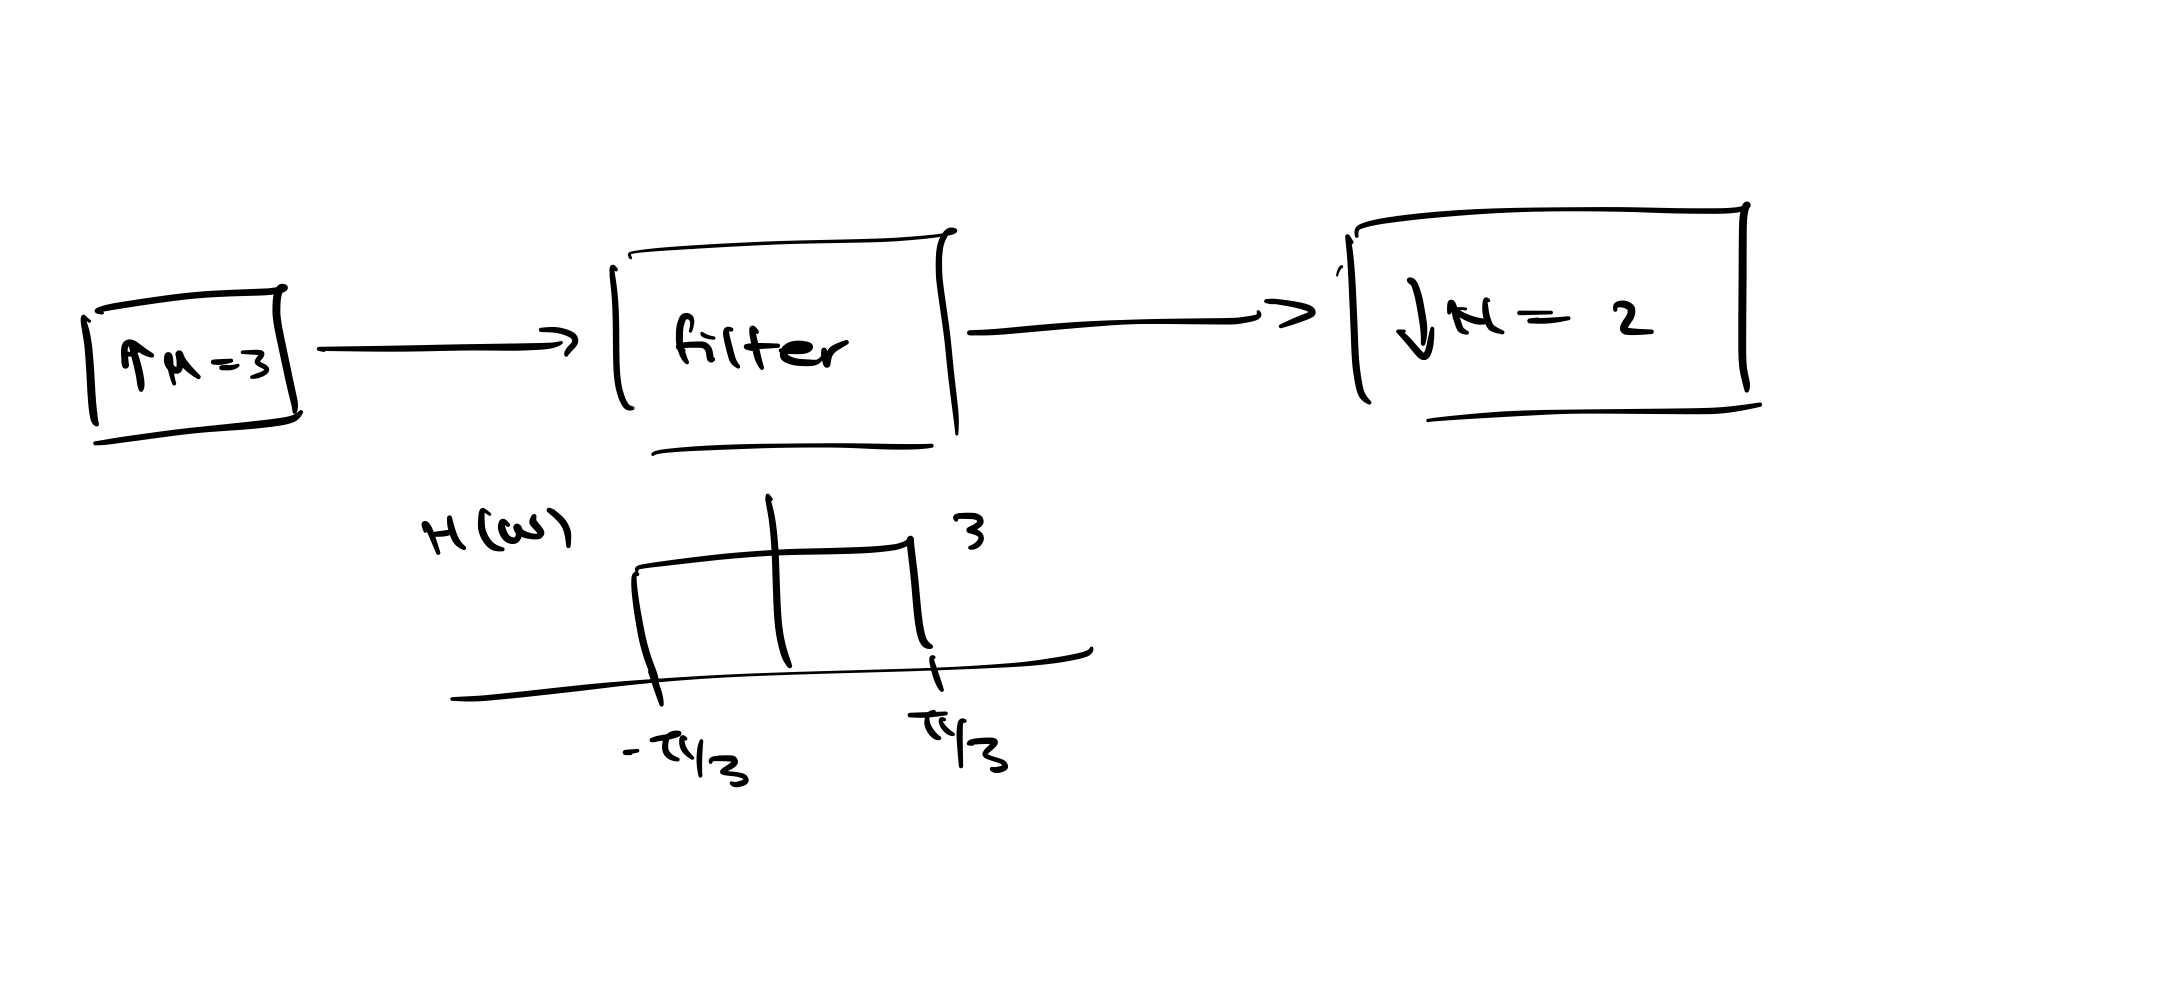 ↑M=3
filter
↓M= 2
H(ω)
3
-π/3
π/3